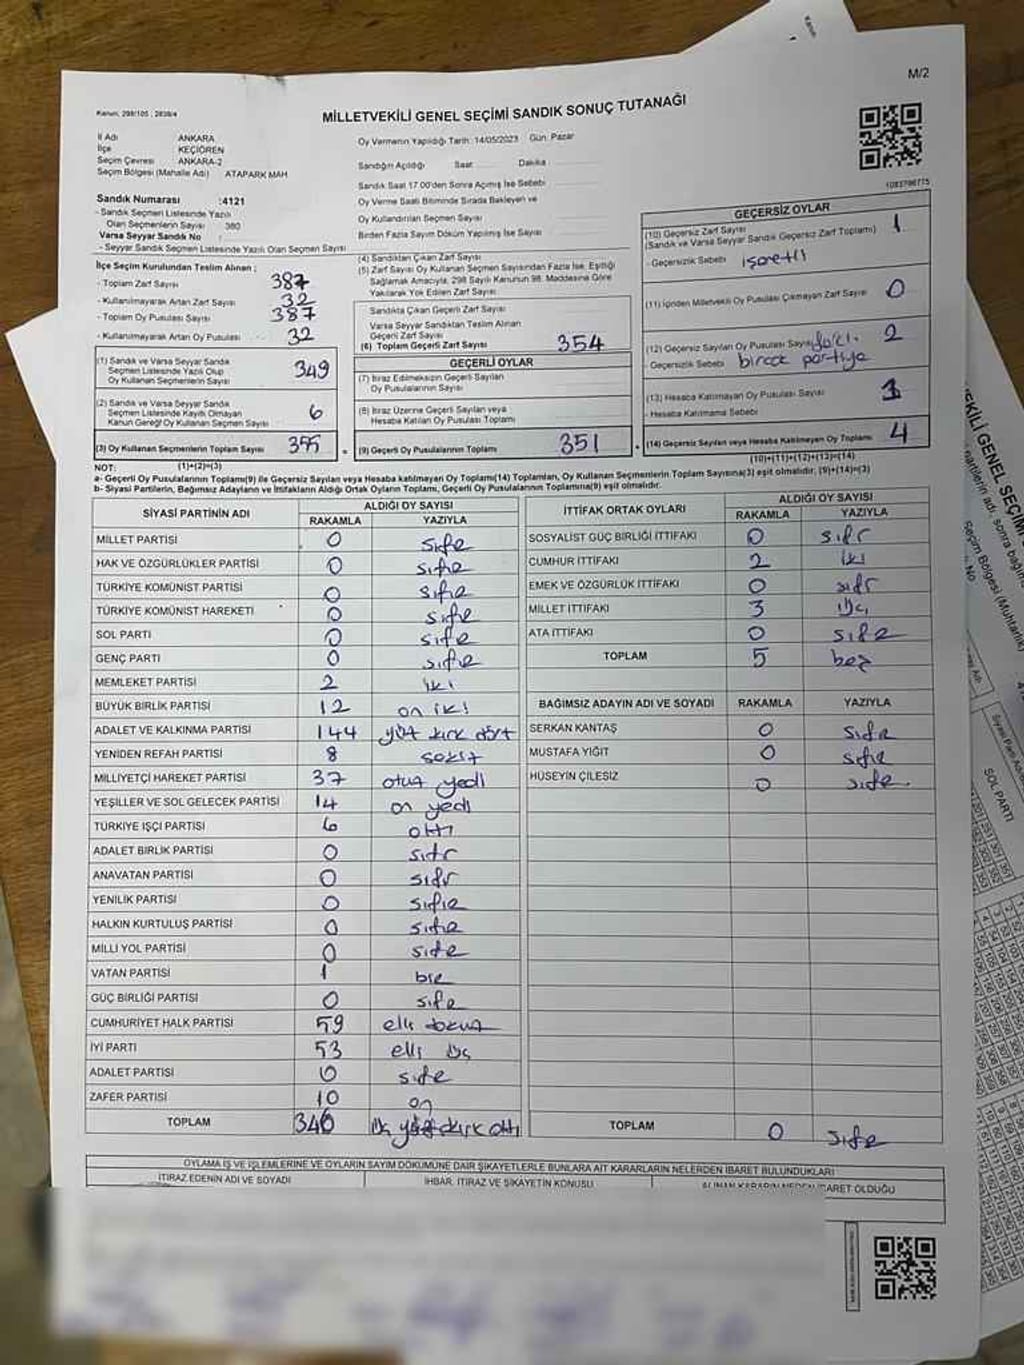 M/2
Kanun: 298/105 , 2839/4
MİLLETVEKİLİ GENEL SEÇİMİ SANDIK SONUÇ TUTANAĞI
İl Adı ANKARA
İlçe KEÇİÖREN
Seçim Çevresi ANKARA-2
Seçim Bölgesi (Mahalle Adı) ATAPARK MAH
Sandık Numarası :4121
- Sandık Seçmen Listesinde Yazılı
Olan Seçmenlerin Sayısı 380
Varsa Seyyar Sandık No :
- Seyyar Sandık Seçmen Listesinde Yazılı Olan Seçmen Sayısı
İlçe Seçim Kurulundan Teslim Alınan :
- Toplam Zarf Sayısı 387
- Kullanılmayarak Artan Zarf Sayısı 32
- Toplam Oy Pusulası Sayısı 387
- Kullanılmayarak Artan Oy Pusulası 32
(1) Sandık ve Varsa Seyyar Sandık
Seçmen Listesinde Yazılı Olup
Oy Kullanan Seçmenlerin Sayısı 349
(2) Sandık ve Varsa Seyyar Sandık
Seçmen Listesinde Kayıtlı Olmayan
Kanun Gereği Oy Kullanan Seçmen Sayısı 6
(3) Oy Kullanan Seçmenlerin Toplam Sayısı 355
(1)+(2)=(3)
Oy Vermenin Yapıldığı Tarih: 14/05/2023 Gün: Pazar
Sandığın Açıldığı Saat Dakika
Sandık Saat 17.00'den Sonra Açılmış İse Sebebi
Oy Verme Saati Bitiminde Sırada Bekleyen ve
Oy Kullandırılan Seçmen Sayısı
Birden Fazla Sayım Döküm Yapılmış İse Sayısı
(4) Sandıktan Çıkan Zarf Sayısı
(5) Zarf Sayısı Oy Kullanan Seçmen Sayısından Fazla İse, Eşitliği
Sağlamak Amacıyla, 298 Sayılı Kanunun 98. Maddesine Göre
Yakılarak Yok Edilen Zarf Sayısı
Sandıkta Çıkan Geçerli Zarf Sayısı
Varsa Seyyar Sandıktan Teslim Alınan
Geçerli Zarf Sayısı
(6) Toplam Geçerli Zarf Sayısı 354
GEÇERLİ OYLAR
(7) İtiraz Edilmeksizin Geçerli Sayılan
Oy Pusulalarının Sayısı
(8) İtiraz Üzerine Geçerli Sayılan veya
Hesaba Katılan Oy Pusulası Toplamı
(9) Geçerli Oy Pusulalarının Toplamı 351
1083766775
GEÇERSİZ OYLAR
(10) Geçersiz Zarf Sayısı
(Sandık ve Varsa Seyyar Sandık Geçersiz Zarf Toplamı) 1
- Geçersizlik Sebebi işaretli
(11) İçinden Milletvekili Oy Pusulası Çıkmayan Zarf Sayısı 0
(12) Geçersiz Sayılan Oy Pusulası Sayısı 2
- Geçersizlik Sebebi partiye
(13) Hesaba Katılmayan Oy Pusulası Sayısı 1
- Hesaba Katılmama Sebebi
(14) Geçersiz Sayılan veya Hesaba Katılmayan Oy Toplamı 4
(10)+(11)+(12)+(13)=(14)
NOT:
a- Geçerli Oy Pusulalarının Toplamı(9) ile Geçersiz Sayılan veya Hesaba katılmayan Oy Toplamı(14) Toplamları, Oy Kullanan Seçmenlerin Toplam Sayısına(3) eşit olmalıdır. (9)+(14)=(3)
b- Siyasi Partilerin, Bağımsız Adayların ve İttifakların Aldığı Ortak Oyların Toplamı, Geçerli Oy Pusulalarının Toplamına(9) eşit olmalıdır.
SİYASİ PARTİNİN ADI ALDIĞI OY SAYISI
RAKAMLA YAZIYLA
MİLLET PARTİSİ 0 sıfır
HAK VE ÖZGÜRLÜKLER PARTİSİ 0 sıfır
TÜRKİYE KOMÜNİST PARTİSİ 0 sıfır
TÜRKİYE KOMÜNİST HAREKETİ 0 sıfır
SOL PARTİ 0 sıfır
GENÇ PARTİ 0 sıfır
MEMLEKET PARTİSİ 2 iki
BÜYÜK BİRLİK PARTİSİ 12 on iki
ADALET VE KALKINMA PARTİSİ 144 yüz kırk dört
YENİDEN REFAH PARTİSİ 8 sekiz
MİLLİYETÇİ HAREKET PARTİSİ 37 otuz yedi
YEŞİLLER VE SOL GELECEK PARTİSİ 14 on yedi
TÜRKİYE İŞÇİ PARTİSİ 6 altı
ADALET BİRLİK PARTİSİ 0 sıfır
ANAVATAN PARTİSİ 0 sıfır
YENİLİK PARTİSİ 0 sıfır
HALKIN KURTULUŞ PARTİSİ 0 sıfır
MİLLİ YOL PARTİSİ 0 sıfır
VATAN PARTİSİ 1 bir
GÜÇ BİRLİĞİ PARTİSİ 0 sıfır
CUMHURİYET HALK PARTİSİ 59 elli dokuz
İYİ PARTİ 53 elli üç
ADALET PARTİSİ 0 sıfır
ZAFER PARTİSİ 10 on
TOPLAM 346 üç yüz kırk altı
İTTİFAK ORTAK OYLARI ALDIĞI OY SAYISI
RAKAMLA YAZIYLA
SOSYALİST GÜÇ BİRLİĞİ İTTİFAKI 0 sıfır
CUMHUR İTTİFAKI 2 iki
EMEK VE ÖZGÜRLÜK İTTİFAKI 0 sıfır
MİLLET İTTİFAKI 3 üç
ATA İTTİFAKI 0 sıfır
TOPLAM 5 beş
BAĞIMSIZ ADAYIN ADI VE SOYADI RAKAMLA YAZIYLA
SERKAN KANTAŞ 0 sıfır
MUSTAFA YİĞİT 0 sıfır
HÜSEYİN ÇİLESİZ 0 sıfır
TOPLAM 0 sıfır
OYLAMA İŞ VE İŞLEMLERİNE VE OYLARIN SAYIM DÖKÜMÜNE DAİR ŞİKAYETLERLE BUNLARA AİT KARARLARIN NELERDEN İBARET BULUNDUKLARI
İTİRAZ EDENİN ADI VE SOYADI İHBAR, İTİRAZ VE ŞİKAYETİN KONUSU ALINAN KARARIN NEDEN İBARET OLDUĞU
SOL PARTİ